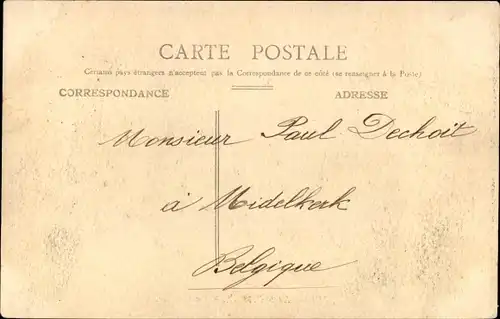 CARTE POSTALE
Certains pays étrangers n'acceptent pas la Correspondance de ce côté (se renseigner à la Poste)
CORRESPONDANCE
ADRESSE
Monsieur Paul Dechoit
à Midelkerk
Belgique